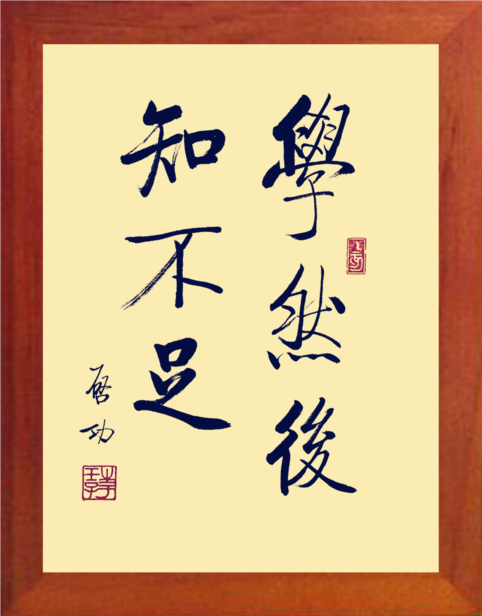 學然後
知不足
啓功